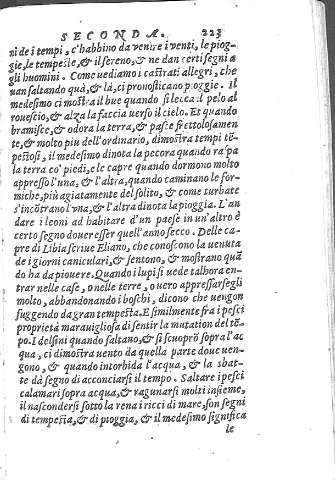 SECONDA. 223
ni de i tempi, c'habbino da venire i venti, le piog-
gie, le tempeste, & il sereno, & ne dan certi segni a
gli huomini. Come uediamo i castrati allegri, che
uan saltando quà, & là, ci pronosticano pioggie. Il
medesimo ci mostra il bue quando si lecca il pelo al
rouescio, & alza la faccia uerso il cielo. Et quando
bramisce, & odora la terra, & pasce frettolosamen
te, & molto piu dell'ordinario, dimostra tempi tē-
pestosi, il medesimo dinota la pecora quando ra'pa
la terra co' piedi, e le capre quando dormono molto
appresso l'una, & l'altra, quando caminano le for-
miche, più agiatamente del solito, & come turbate
s'incōtrano l'una, & l'altra dinota la pioggia. L'an
dare i leoni ad habitare d'un paese in un'altro è
certo segno douer esser quell'anno secco. Delle ca-
pre di Libia scriue Eliano, che conoscono la uenuta
de i giorni caniculari, & sentono, & mostrano quā
do ha da piouere. Quando i lupi si uede talhora en-
trar nelle case, o nelle terre, o uero appressarsegli
molto, abbandonando i boschi, dicono che uengon
fuggendo da gran tempesta. E similmente fra i pesci
proprietà marauigliosa di sentir la mutation del tē-
po. I delfini quando saltano, & si scuoprō sopra l'ac
qua, ci dimostra uento da quella parte doue uen-
gono, & quando intorbida l'acqua, & la sbat-
te dà segno di acconciarsi il tempo. Saltare i pesci
calamari sopra acqua, & ragunarsi molti insieme,
il nascondersi sotto la rena i ricci di mare, son segni
di tempesta, & di pioggia, & il medesimo significa
le